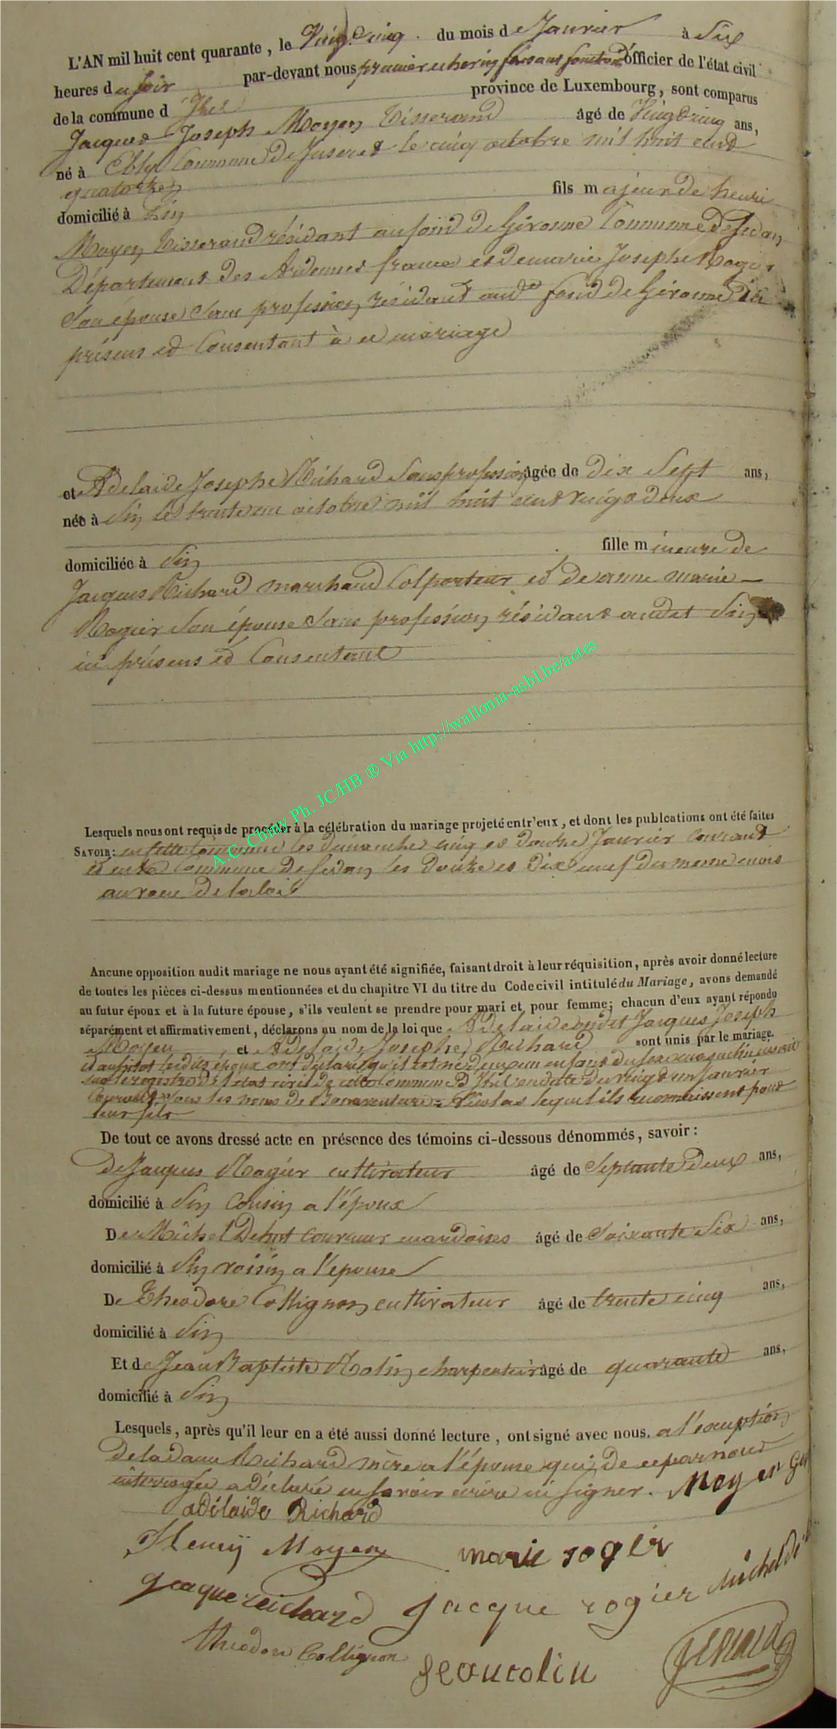 L'AN mil huit cent quarante, le Vingt Cinq du mois de Janvier à Six
heures du soir par-devant nous premier echevin faisant fonction d'officier de l'état civil
de la commune d province de Luxembourg, sont comparus
Jacques Joseph Moyen Tisserand âgé de Vingt cinq ans,
né à Ebly Commune de Juseret le cinq octobre mil huit cent
quatorze
domicilié à Sin fils majeur de henri
Moyen Tisserand résidant au fond de Givonne Commune de Sedan
Département des Ardennes france et de marie Josephe Rogier
Son épouse Sans profession, résidant audt fond de Givonne ici
présens et Consentant à ce mariage
et Adelaide Josephe Richard Sans profession âgée de dix Sept ans,
née à Sin le trente un octobre mil huit cent vingt deux
domiciliée à Sin fille mineure de
Jacques Richard marchand Colporteur et de anne marie
Rogier Son épouse Sans profession, résidant audit Sin
ici présens et Consentant
A.C. Chiny Ph. JC/HB ® Via http://wallonia-asbl.be/actes
Lesquels nous ont requis de procéder à la célébration du mariage projeté entr'eux, et dont les publications ont été faites
SAVOIR: en cette Commune les dimanche cinq et douze Janvier Courant
et en la Commune de Sedan les Douze et Dix neuf du meme mois
au voeu de la loi
Ancune opposition audit mariage ne nous ayant été signifiée, faisant droit à leur réquisition, après avoir donné lecture
de toutes les pièces ci-dessus mentionnées et du chapitre VI du titre du Code civil intitulé du Mariage, avons demandé
au futur époux et à la future épouse, s'ils veulent se prendre pour mari et pour femme; chacun d'eux ayant répondu
séparément et affirmativement, déclarons au nom de la loi que Jacques Joseph
Moyen et Adelaide Josephe Richard sont unis par le mariage.
et aussitot lesdits époux ont déclaré qu'il est né d'eux un enfant du sexe masculin inscrit
sur le registre de l'etat civil de cette Commune en date du vingt un Janvier
Courant sous les noms de Bonaventure Nicolas lequel ils reconnaissent pour
leur fils
De tout ce avons dressé acte en présence des témoins ci-dessous dénommés, savoir:
De Jacques Rogier cultivateur âgé de Septante Deux ans,
domicilié à Sin Cousin a l'époux
De Michel Dehut Couvreur en ardoises âgé de Soixante Six ans,
domicilié à Sin voisin a l'épouse
De Theodore Collignon, cultivateur âgé de trente cinq ans,
domicilié à Sin
Et de Jean Baptiste Rolin charpentier âgé de quarante ans,
domicilié à Sin
Lesquels, après qu'il leur en a été aussi donné lecture, ont signé avec nous. a l'exception
de la dame Richard mère a l'épouse qui de ce par nous
interrogée a déclaré ne savoir écrire ni signer. Moyen
adélaide Richard
Henrÿ Moyen marie rogier
Jacque reichard Jacque rogier Michel
théodore Collignon Jean rolin